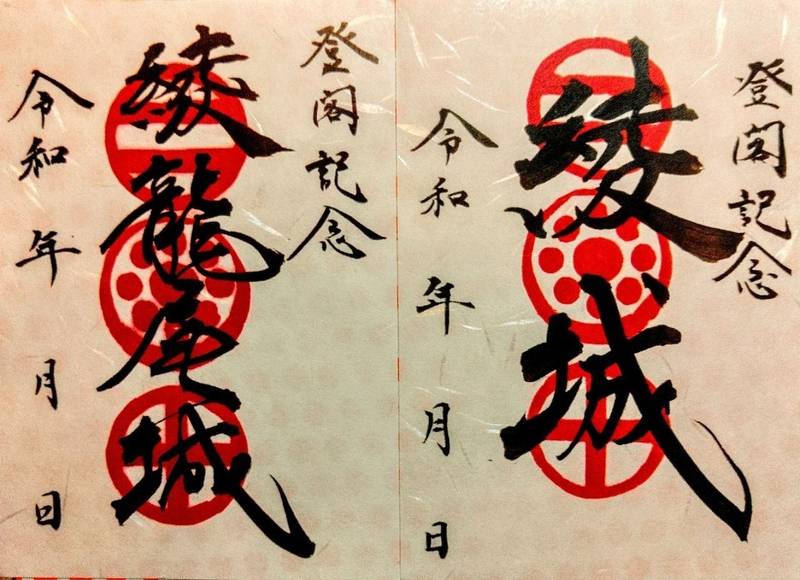 登閣記念
綾城
令和 年 月 日
登閣記念
綾龍尾城
令和 年 月 日